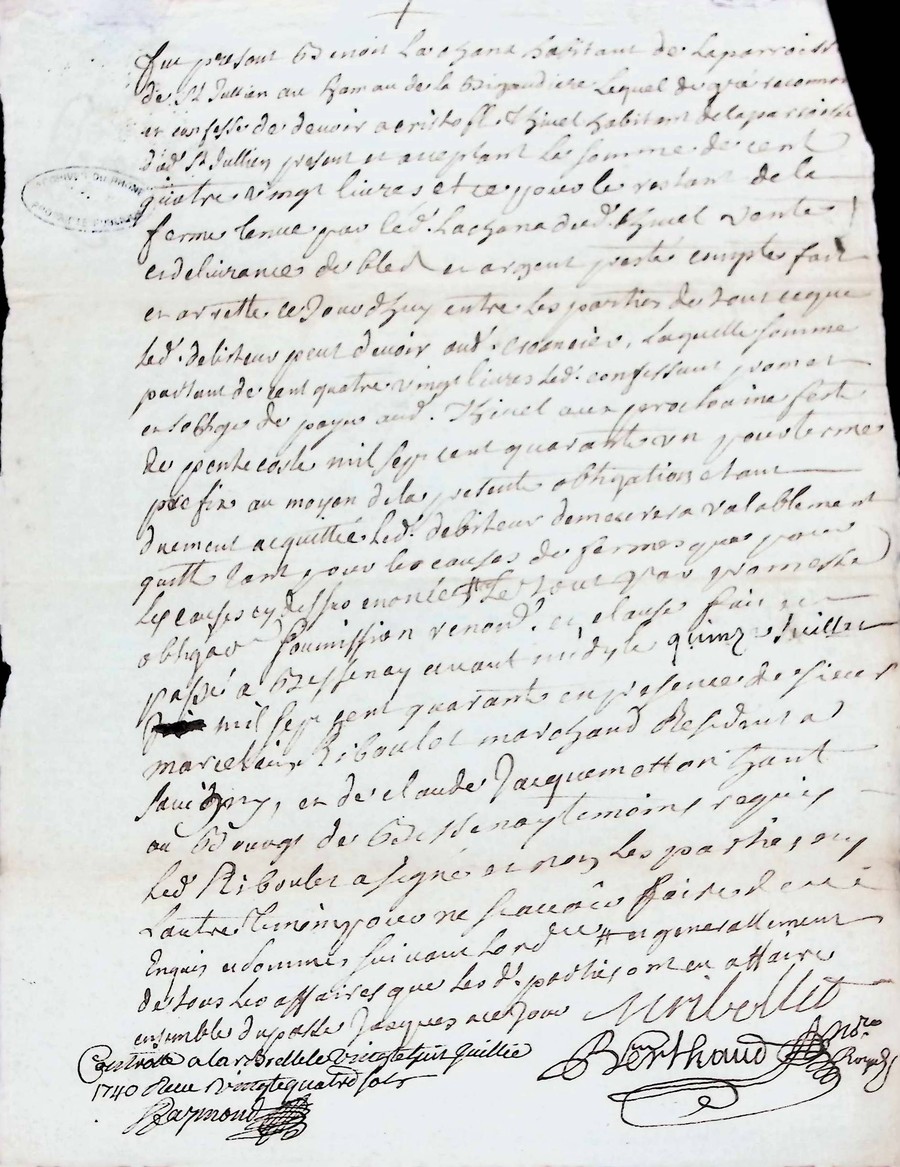 fut present Benoit Lachana habitant de la parroisse
de St Jullien au hamau de la Bigaudiere Lequel de gré reconnoi
et confesse de devoir a cristofle Thivel habitant de la parroisse
d'ad. St Jullien present et acceptant La somme de cent
quatre vingt livres et ce pour le restant de la
ferme tenue par led. Lachana dud. Thivel vente
et delivrance de bled et argent presté compte fait
et arretté ce Jourdhuy entre Les parties de tout ceque
Led. debiteur peut devoir aud. creancier, Laquelle somme
partant de cent quatre vingt livres Led. confessant promet
et soblige de payer aud. Thivel aux prochaine feste
de pentecoste mil sept cent quarante un pour terme
prefix au moyen de la presente obligation etant
duement acquittée Led. debiteur demeurera valablement
quitte tant pour les causes de fermes que pour
Les causes cy dessus enoncée # Le tout par promesse
obligaon soumission renond. et clauses fait et
passé a Bessenay avant midy le quinze Juillet
mil sept cent quarante en presence de sieur
marcelain Riboulet marchand Resident a
Savigny, et de claude Jacquemetton habt
au Bourg de Bessenay temoins requis
Led. Riboulet a signé et non Les parties ny
L'autre temoin pour ne scavoir faire de ce
Enquis et sommés suivant Lordce # et generallement
de tous Les affaires que Les d. parties ont eu affaire
ensemble du passé Jusques a ce Jour
Mribollet
Berthaud No.re Royal
Controlé a la Brelle le vingt huit Juillie
1740 Reçu vingt quatre sols
Raymond
ARCHIVES DU RHONE